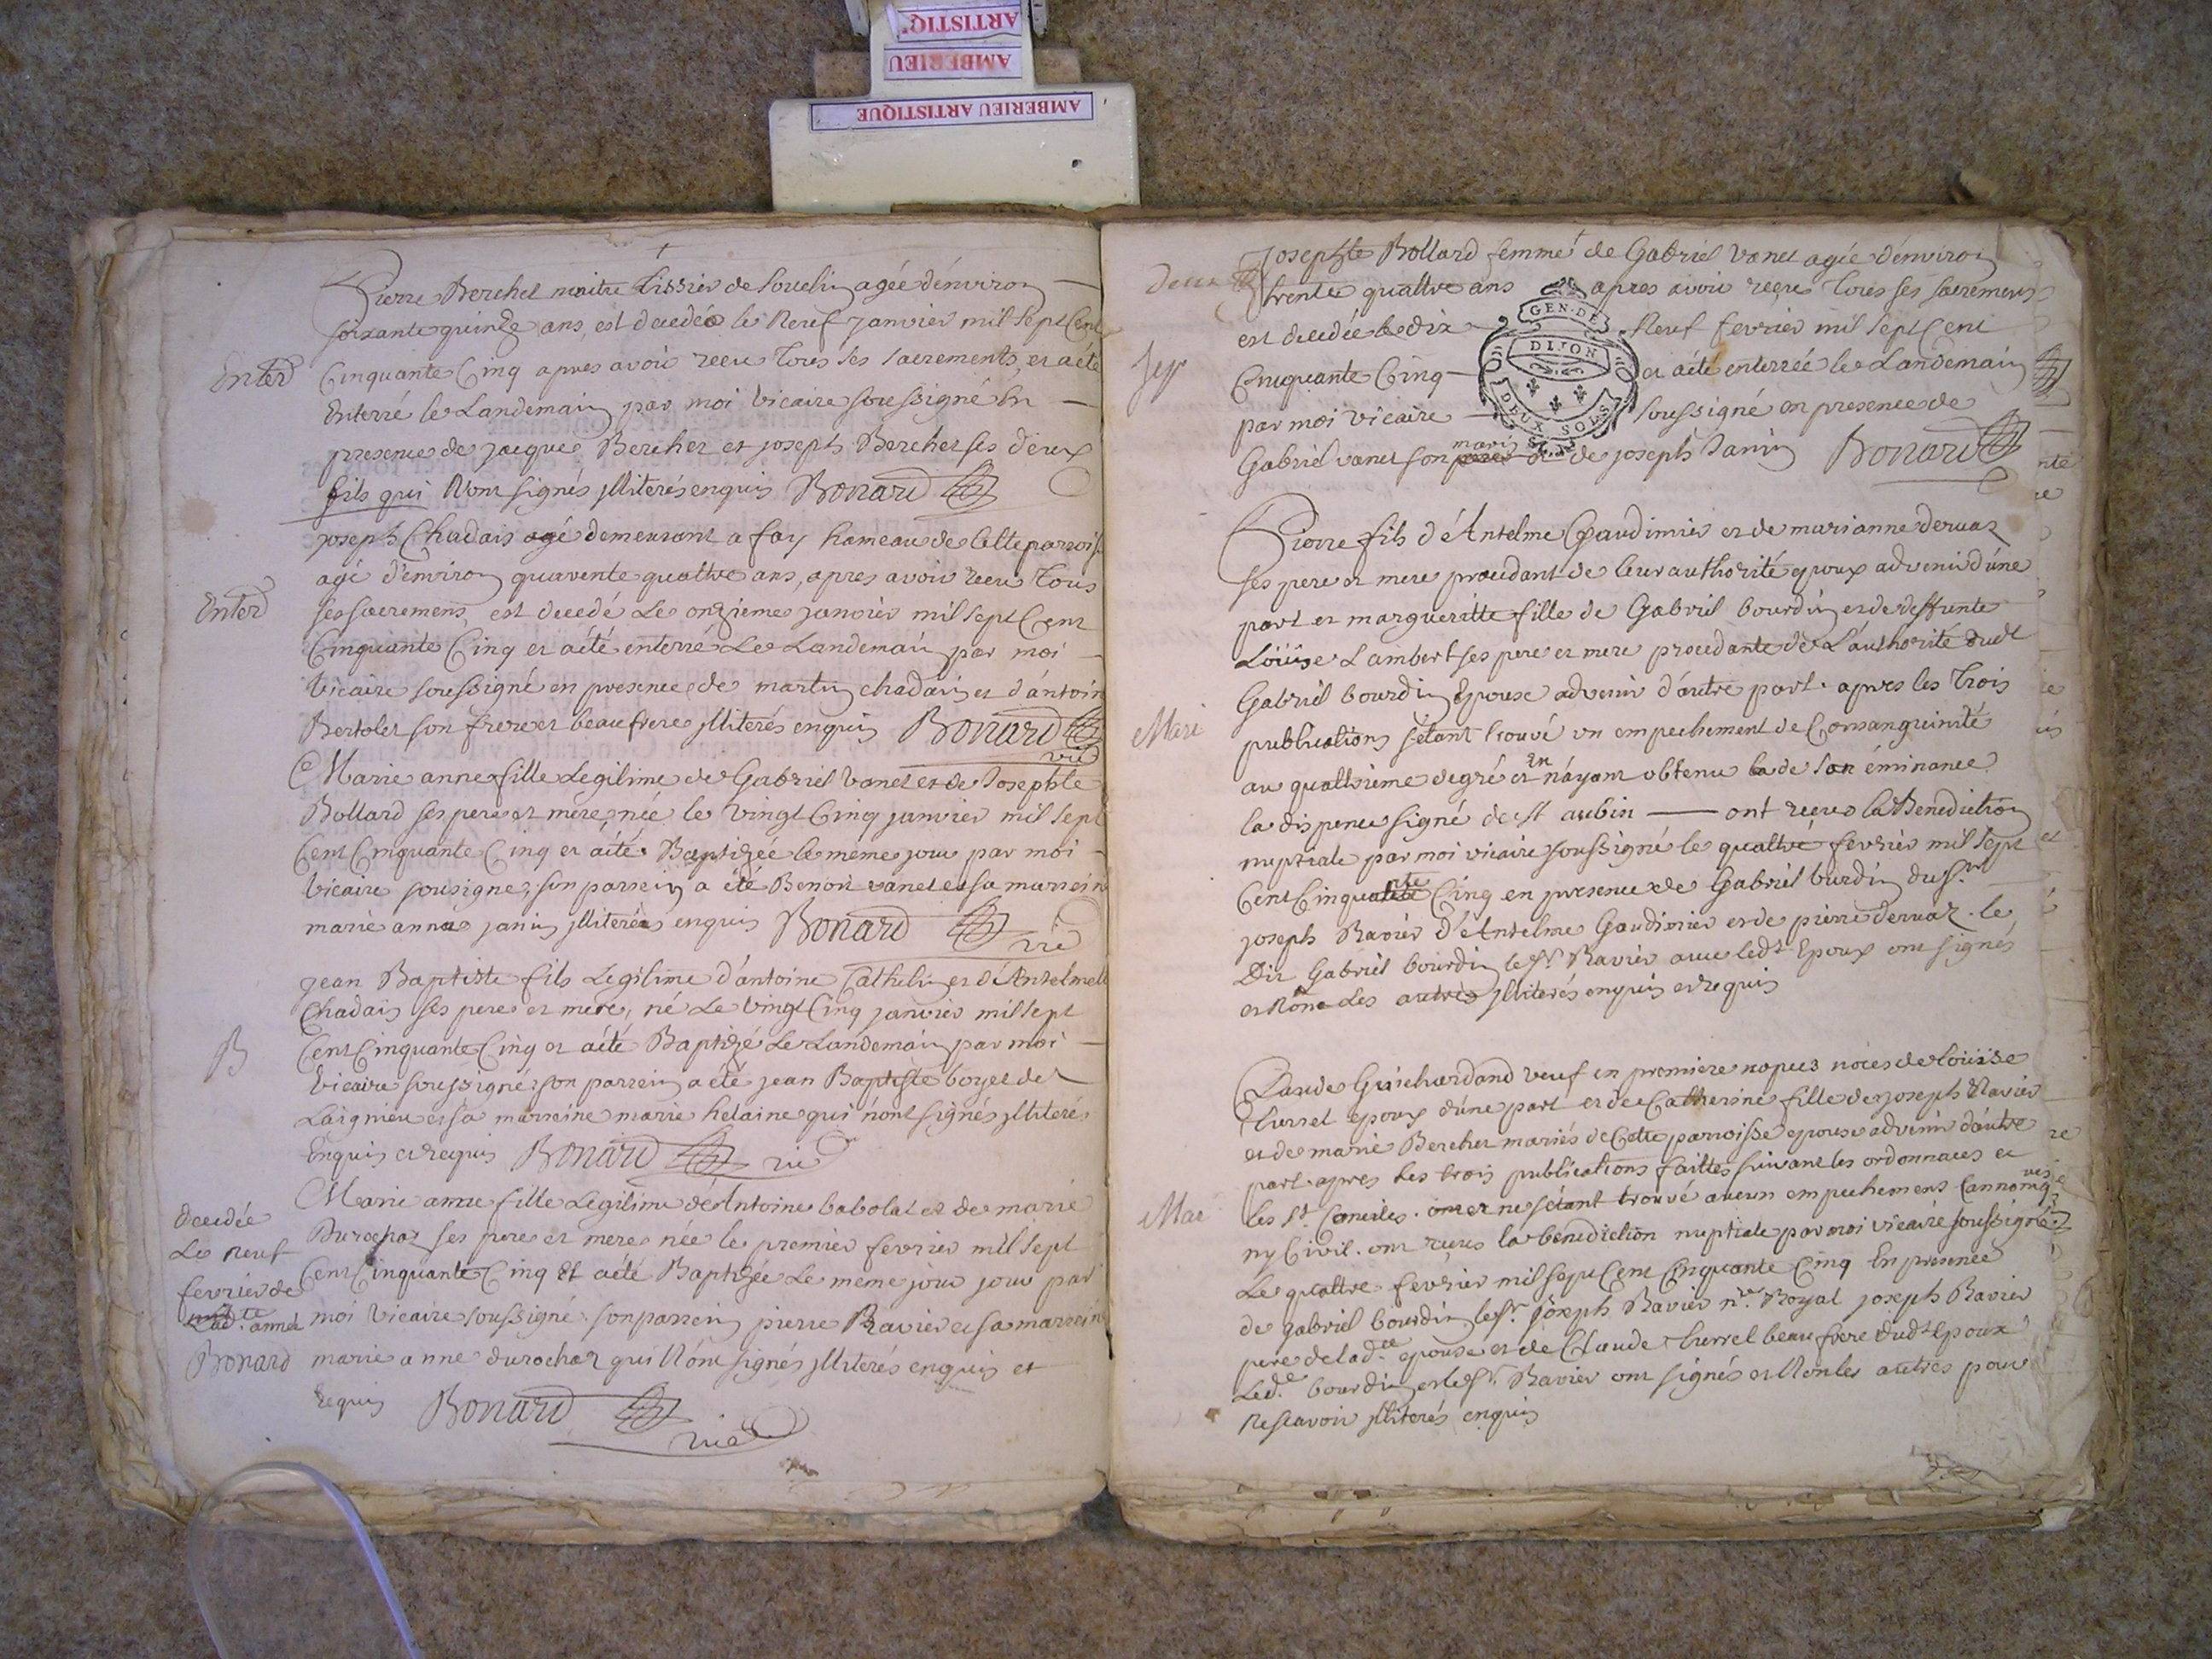 ARTISTIQ'
AMBERIEU
AMBERIEU ARTISTIQUE
Pierre Berchet maitre tissier de Souclin agée d'environ
soixante quinze ans, est decedéé le Neuf janvier mil sept Cent
Cinquante Cinq apres avoir receu tous ses sacrements, et a été
Enterré le Landemain par moi vicaire soussigné En
presence de jacque Bercher et joseph Berchet ses deux
fils qui N'ont signés jlliterés enquis Bonard
Enter
joseph Chadais agé demeurant a fay hameau de Cette parroisse
agé d'environ quarente quattre ans, apres avoir receu tous
ses sacremens, est decedé Le onzieme janvier mil sept Cent
Cinquante Cinq et a été enterré Le Landemain par moi
Vicaire soussigné en presence de martin chadais et d'antoine
Bertolet son frere et beau frere jlliterés enquis Bonard
vic
Enter
Marie anne fille Legitime de Gabriel Vanet et de Josephte
Bollard ses pere et mere, née le vingt Cinq janvier mil sept
Cent Cinquante Cinq et a été Baptizée le meme jour par moi
Vicaire sousigné, son parrein a été Benoit vanet et sa marreine
marie anne janin jlliterés enquis Bonard
vic
jean Baptiste fils Legitime d'antoine Cathelin et d'Antelmette
Chadais ses pere et mere, né Le vingt Cinq janvier mil sept
Cent Cinquante Cinq et a été Baptizé Le Landemain par moi
Vicaire soussigné, son parrein a été jean Baptiste boyet de
Laignieu et sa marreine marie helaine qui n'ont signés jlliterés
Enquis et requis Bonard vic
B
Marie anne fille Legitime d'Antoine babolat et de marie
Durochat ses pere et mere née le premier fevrier mil sept
Cent Cinquante Cinq Et a été Baptizée Le meme jour jour par
moi Vicaire soussigné. son parrein pierre Ravier et sa marreine
marie anne durochat qui N'ont signés jlliterés enquis et
requis Bonard
vic
decedée
Le neuf
fevrier de
Lad.te année
Bonard
Josephte Bollard femme de Gabriel Vanet agée d'environ
trente quattre ans apres avoir receu tous ses sacremens
est decedée le dix Neuf fevrier mil sept Cent
Cinquante Cinq et a été enterrée le Landemain
par moi vicaire soussigné en presence de
Gabriel vanet son pere mari et de joseph Janin Bonard
GEN. DE
DIJON
DEUX SOLS
Pierre fils d'Antelme Gaudimier et de marianne dervaz
ses pere et mere procedant de leur authorité epoux advenir d'une
part et margueritte fille de Gabriel bourdin et de deffunte
Loüise Lambert ses pere et mere procedante de L'authorité dudt
Gabriel bourdin Epouse advenir d'autre part. apres les trois
publications s'étant trouvé un empechement de Consanguinité
au quattrieme degré et en n'ayant obtenu la de son éminence
la dispence signé de st aubin ont receus la Benediction
nuptiale par moi vicaire soussigné le quattre fevrier mil sept
Cent Cinquante Cinq en presence de Gabriel burdin du sr
joseph Ravier d'Antelme Gaudimier et de pierre dervaz. le
Dit Gabriel bourdin le sr. Ravier avec ledt Epoux ont signés
et Non Les autres jlliterés enquis et requis
Mari
Claude Guichardand veuf en premiere nopces noces de loüise
Thurrel epoux d'une part et de Catherine fille de joseph Ravier
et de marie Bercher mariés de Cette parroisse epouse advenir d'autre
part. apres Les trois publications faittes suivant les ordonnances et
les st. Conciles. ont et ne s'étant trouvé aucun empechement Cannonique
ny Civil. ont receus la benediction nuptiale par moi vicaire soussigné
Le quattre fevrier mil sept Cent Cinquante Cinq En presence
de gabriel bourdin le sr. joseph Ravier n.re Royal joseph Ravier
pere de lad.e epouse et de Claude thurrel beau frere dudt Epoux
Led.t bourdin et le sr. Ravier ont signés et Non les autres pour
ne scavoir jlliterés enquis
Mar